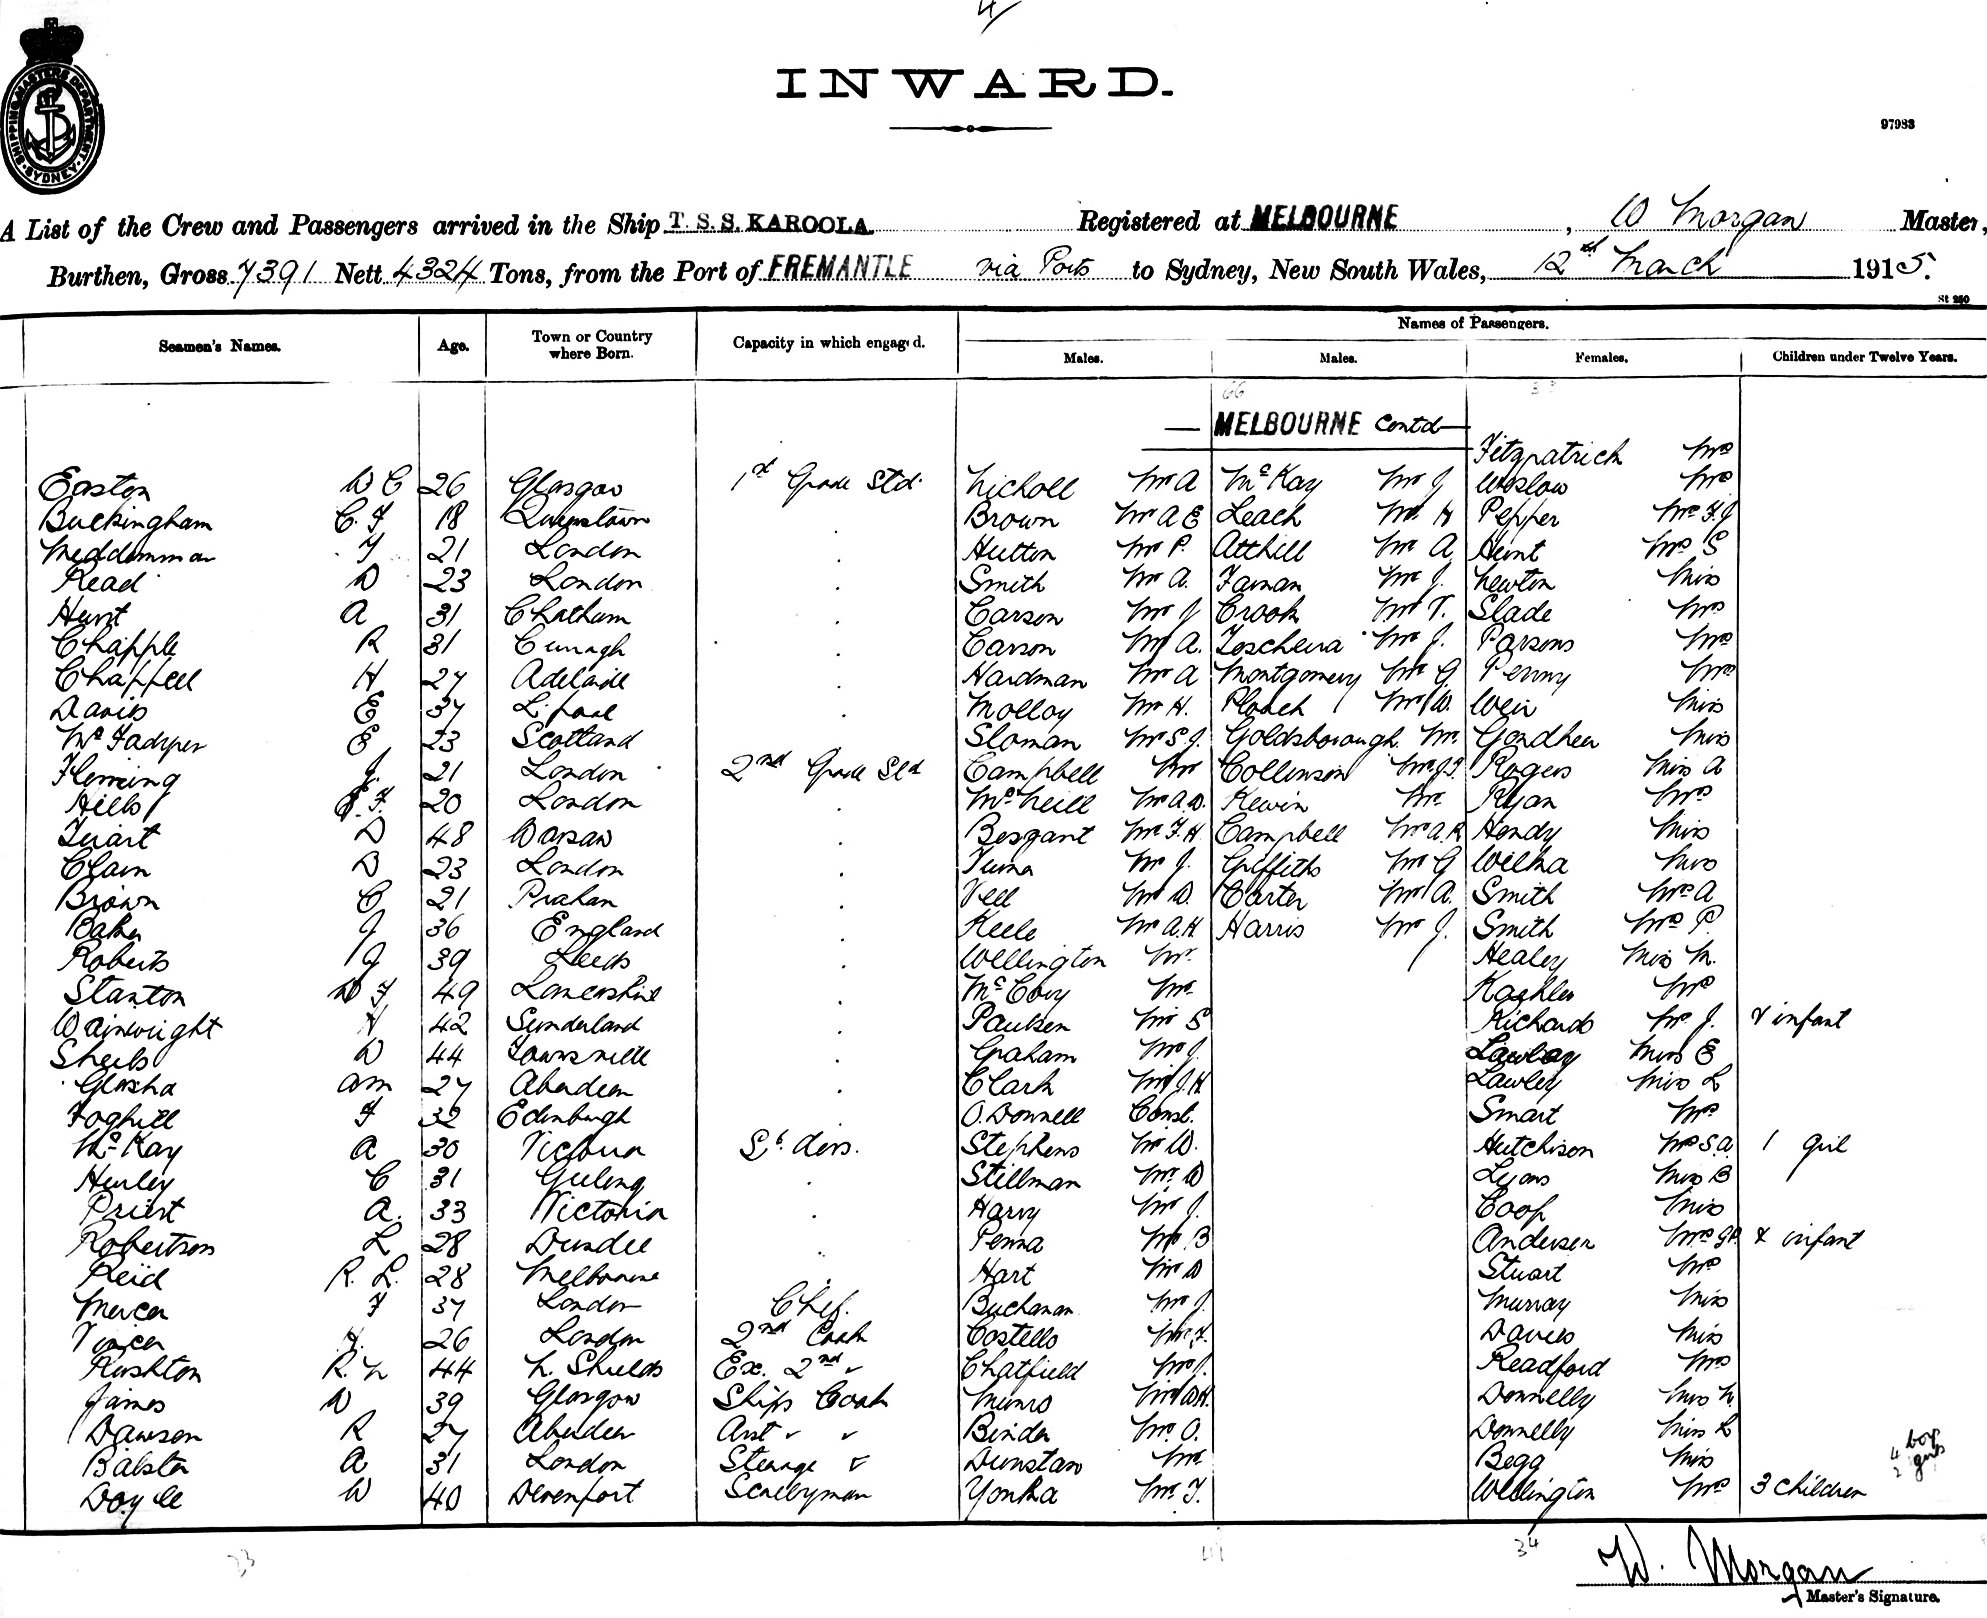 4
INWARD.
97983
SHIPPING MASTERS DEPARTMENT SYDNEY
A List of the Crew and Passengers arrived in the Ship T.S.S. KAROOLA Registered at MELBOURNE, W Morgan Master,
Burthen, Gross 7391 Nett 4324 Tons, from the Port of FREMANTLE via Ports to Sydney, New South Wales, 12th March 1915.
St 250
Names of Passengers.
Seamen's Names. Age. Town or Country where Born. Capacity in which engaged. Males. Males. Females. Children under Twelve Years.
66
— MELBOURNE Contd —
Fitzpatrick Mrs
Easton W C 26 Glasgow 1st Grade Std. Nicholl Mr A McKay Mr J Winslow Mrs
Buckingham C. F 18 Queenstown Brown Mr A E Leach Mr H Pepper Mrs F. J
21 London Hutton Mr P. Atthill Mr A Hunt Mrs S
Read W 23 London Smith Mr A. Mr J. Newton Miss
Hunt A 31 Chatham Carson Mr J Crook Mr T. Slade Mrs
Chapple R 31 Curragh Carson Mr A. Mr J. Parsons Mrs
Chappell H 27 Adelaide Hardman Mr A Montgomery Mr G Penny Mrs
Davis E 37 L.pool Molloy Mr H. Mr W. Weir Miss
E 23 Scotland Sloman Mr S J. Goldsborough Mr. Miss
Fleming J. 21 London 2nd Grade Std Campbell Mr Collinson Rogers Miss A
Hills 20 London McNeill Mr A. D. Kewin Mr Ryan Mrs
D 48 Warsaw Besgant Mr F. H Campbell Mr A. R Hendy Miss
Clain D 23 London Mr J. Griffiths Mr G Miss
Brown C 21 Prahan Vell Mr D. Carter Mr A. Smith Mrs A
Baker J 36 England Keele Mr A. H Harris Mr J. Smith Mrs P.
Roberts G 39 Leeds Wellington Mr. Healey Miss M.
Stanton W F 49 Lancashire McCovy Mr. Kaehler Mrs
Wainwright H 42 Sunderland Paulsen Mr S Richards Mrs J. & infant
Sheils W 44 Townsville Graham Mr J. Lawley Miss E
AM 27 Aberdeen Clark Mr J. H Lawley Miss L
Foghill F 32 Edinburgh O.Donnell Const. Smart Mrs
McKay A 30 Victoria Stephens Mr W. Hutchison Mrs S. A 1 girl
Hurley C 31 Geelong Stillman Mr. W Lyons Miss B
Priest A. 33 Victoria Harvy Mr J. Coop Miss
Robertson L 28 Dundee Penna Mr B Andersen Mrs & infant
Reid R. L. 28 Melbourne Hart Mr W Stuart Mrs
Mercer F 37 London Chef. Buchanan Mr J. Murray Miss
26 London 2nd Cook Costello Mr F. Davies Miss
Rushton R. N 44 N. Shields Ex. 2nd " Chatfield Mr J. Readford Mrs
James W 39 Glasgow Ships Cook Munro Mr W H. Donnelly Miss N
Dawson R 27 Aberdeen Asst " " Binder Mr. O. Donnelly Miss L
Balster A 31 London Steerage " Dunstan Mr. Begg Miss 4 boys
2 girls
Doyle W 40 Devenport Sculleryman Yonka Mr. T. Wellington Mrs 3 children
33 34
W. Morgan
Master's Signature.